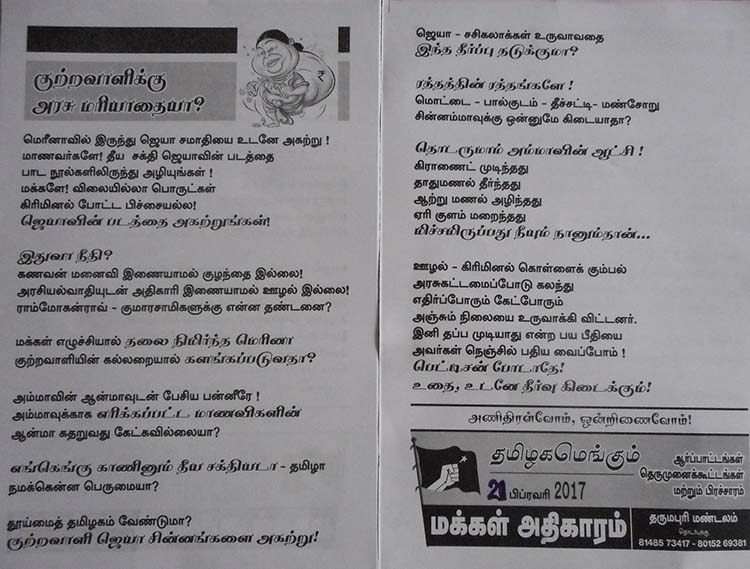 குற்றவாளிக்கு
அரசு மரியாதையா?
மெரீனாவில் இருந்து ஜெயா சமாதியை உடனே அகற்று !
மாணவர்களே! தீய சக்தி ஜெயாவின் படத்தை
பாட நூல்களிலிருந்து அழியுங்கள் !
மக்களே! விலையில்லா பொருட்கள்
கிரிமினல் போட்ட பிச்சையல்ல!
ஜெயாவின் படத்தை அகற்றுங்கள்!
இதுவா நீதி?
கணவன் மனைவி இணையாமல் குழந்தை இல்லை!
அரசியல்வாதியுடன் அதிகாரி இணையாமல் ஊழல் இல்லை!
ராம்மோகன்ராவ் - குமாரசாமிகளுக்கு என்ன தண்டனை?
மக்கள் எழுச்சியால் தலை நிமிர்ந்த மெரினா
குற்றவாளியின் கல்லறையால் களங்கப்படுவதா?
அம்மாவின் ஆன்மாவுடன் பேசிய பன்னீரே !
அம்மாவுக்காக எரிக்கப்பட்ட மாணவிகளின்
ஆன்மா கதறுவது கேட்கவில்லையா?
எங்கெங்கு காணினும் தீய சக்தியடா - தமிழா
நமக்கென்ன பெருமையா?
தூய்மைத் தமிழகம் வேண்டுமா?
குற்றவாளி ஜெயா சின்னங்களை அகற்று!
ஜெயா - சசிகலாக்கள் உருவாவதை
இந்த தீர்ப்பு தடுக்குமா?
ரத்தத்தின் ரத்தங்களே !
மொட்டை - பால்குடம் - தீச்சட்டி- மண்சோறு
சின்னம்மாவுக்கு ஒன்னுமே கிடையாதா?
தொடருமாம் அம்மாவின் ஆட்சி !
கிராணைட் முடிந்தது
தாதுமணல் தீர்ந்தது
ஆற்று மணல் அழிந்தது
ஏரி குளம் மறைந்தது
மிச்சமிருப்பது நீயும் நானும்தான்...
ஊழல் - கிரிமினல் கொள்ளைக் கும்பல்
அரசுகட்டமைப்போடு கலந்து
எதிர்ப்போரும் கேட்போரும்
அஞ்சும் நிலையை உருவாக்கி விட்டனர்.
இனி தப்ப முடியாது என்ற பய பீதியை
அவர்கள் நெஞ்சில் பதிய வைப்போம் !
பெட்டிசன் போடாதே!
உதை, உடனே தீர்வு கிடைக்கும்!
அணிதிரள்வோம், ஒன்றிணைவோம்!
தமிழகமெங்கும்
21 பிப்ரவரி 2017
ஆர்ப்பாட்டங்கள்
தெருமுனைக்கூட்டங்கள்
மற்றும் பிரச்சாரம்
மக்கள் அதிகாரம்
தருமபுரி மண்டலம்
தொடர்புக்கு
81485 73417 - 80152 69381